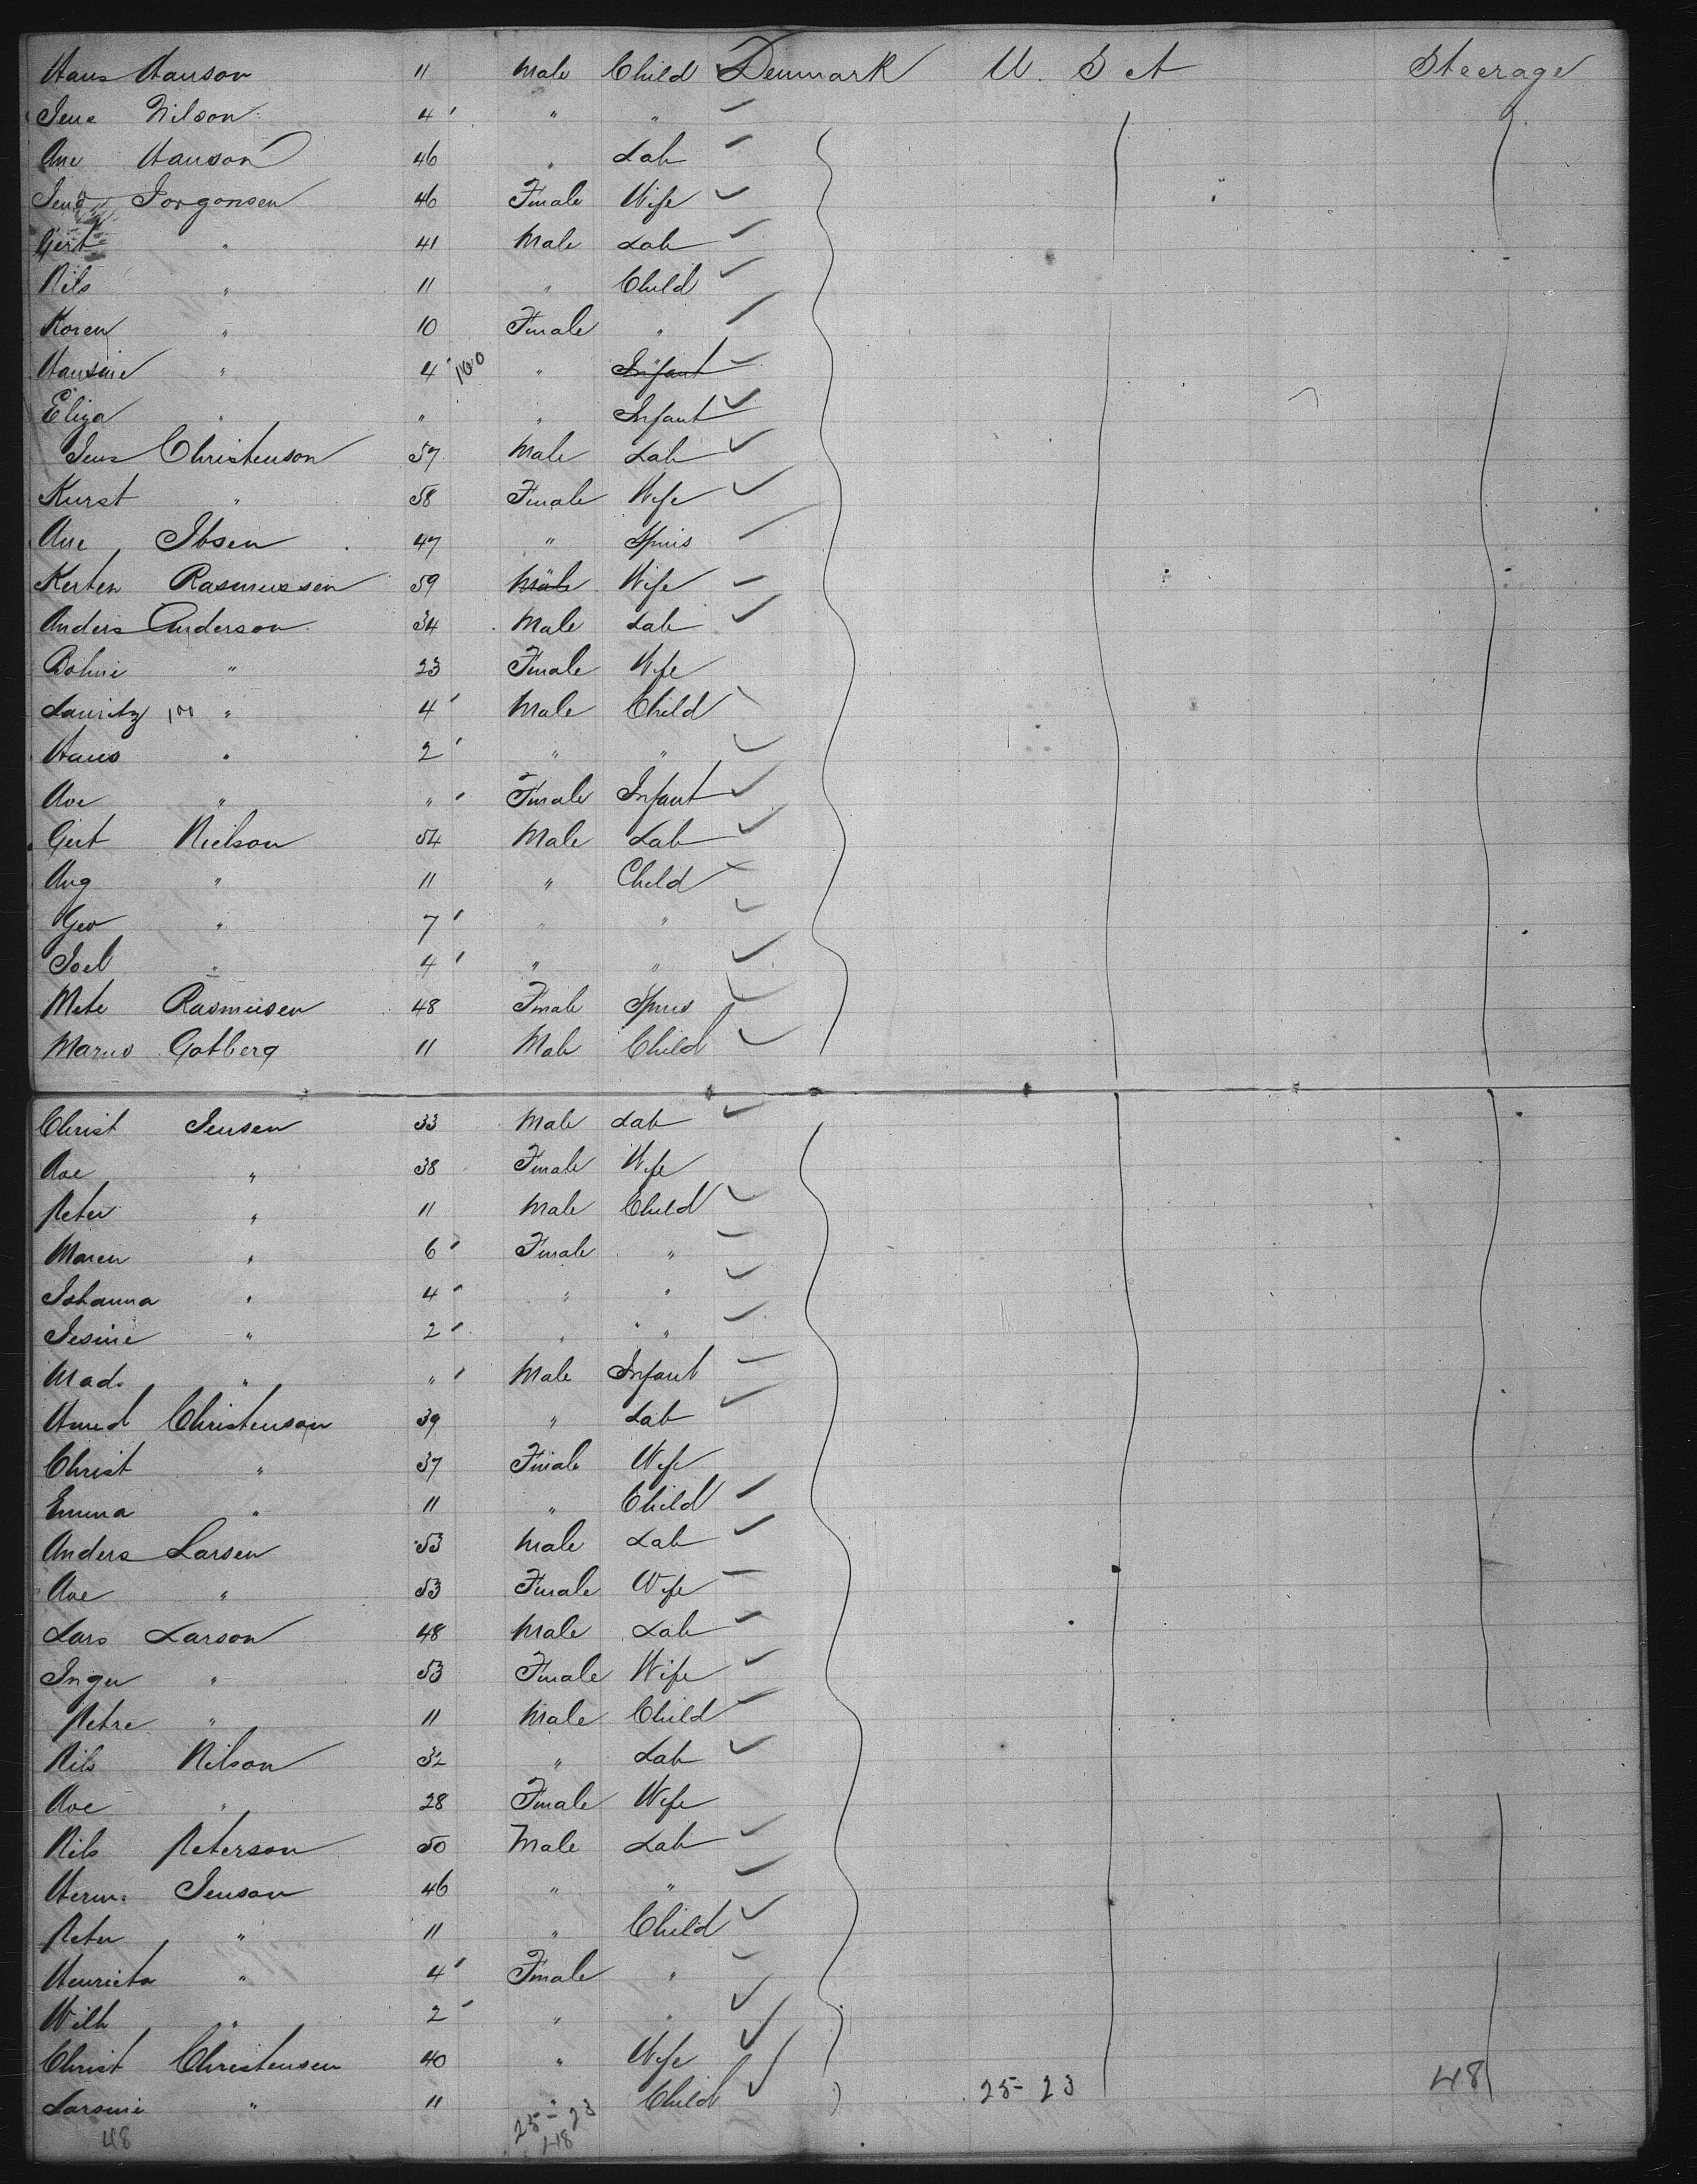 Hans Hanson 11 Male Child Denmark U. S A Steerage
Jens Nilson 4 " "
Ane Hanson 46 " Lab
Jens Jorgonsen 46 Female Wife
Gert " 41 Male Lab
Nils " 11 " Child
Koren " 10 Female "
Hansine " 4 100 " Infant
Eliza " " " Infant
Jens Christenson 57 Male Lab
Kirst " 58 Female Wife
Ane Ibsen 47 " Spins
Kerten Rasmussen 59 Male Wife
Anders Anderson 34 Male Lab
Bohne " 23 Female Wife
Lauritz 100 " 4 Male Child
Hans " 2 " "
Ane " " Female Infant
Gert Nielson 54 Male Lab
Aug " 11 " Child
Geo " 7 " "
Joel " 4 " "
Mete Rasmeisen 48 Female Spins
Marus Gotberg 11 Male Child
Christ Jensen 33 Male Lab
Ane " 38 Female Wife
Peter " 11 Male Child
Maren " 6 Female "
Johanna " 4 " "
Jesine " 2 " " "
Mads " " Male Infant
Christenson 39 " Lab
Christ " 37 Female Wife
Emma " 11 " Child
Anders Larsen 53 Male Lab
Ane " 53 Female Wife
Lars Larson 48 Male Lab
Inger " 53 Female Wife
Petre " 11 Male Child
Nils Nilson 32 " Lab
Ane " 28 Female Wife
Nils Peterson 50 Male Lab
Herm. Jenson 46 " "
Peter " 11 " Child
Henrieta " 4 Female "
Wilh " 2 " "
Christ Christensen 40 " Wife
Larsine " 11 " Child 25-23 48
48 25-23
48